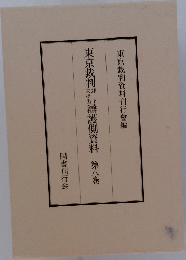 東京裁判資料刊行会編
東京裁判却下未提出辯護側資料 第八巻
国書刊行会